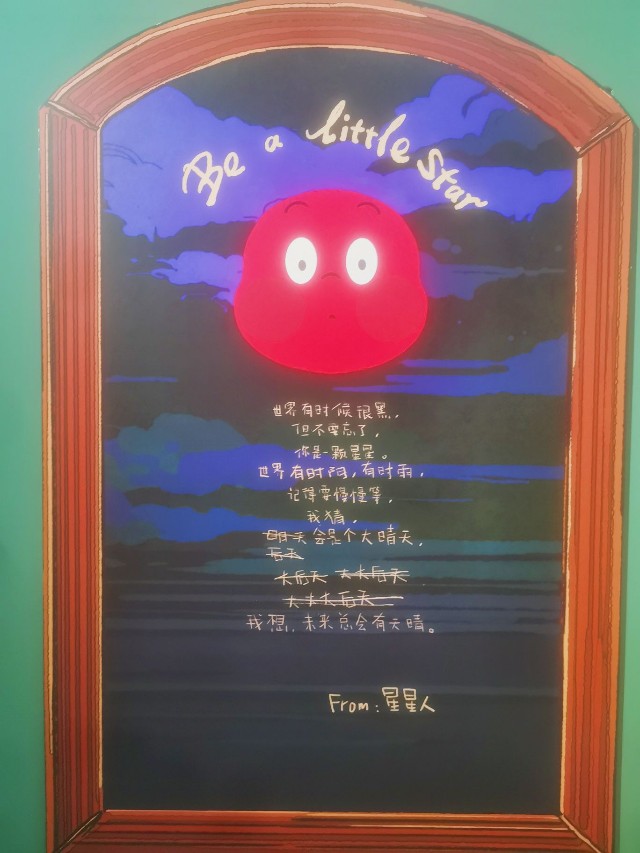 Be a little Star
世界有时候很黑，
但不要忘了，
你是一颗星星。
世界有时阴，有时雨，
记得要慢慢等，
我猜，
明天会是个大晴天，
后天
大后天 大大后天
大大大后天
我想，未来总会有天晴。
From：星星人